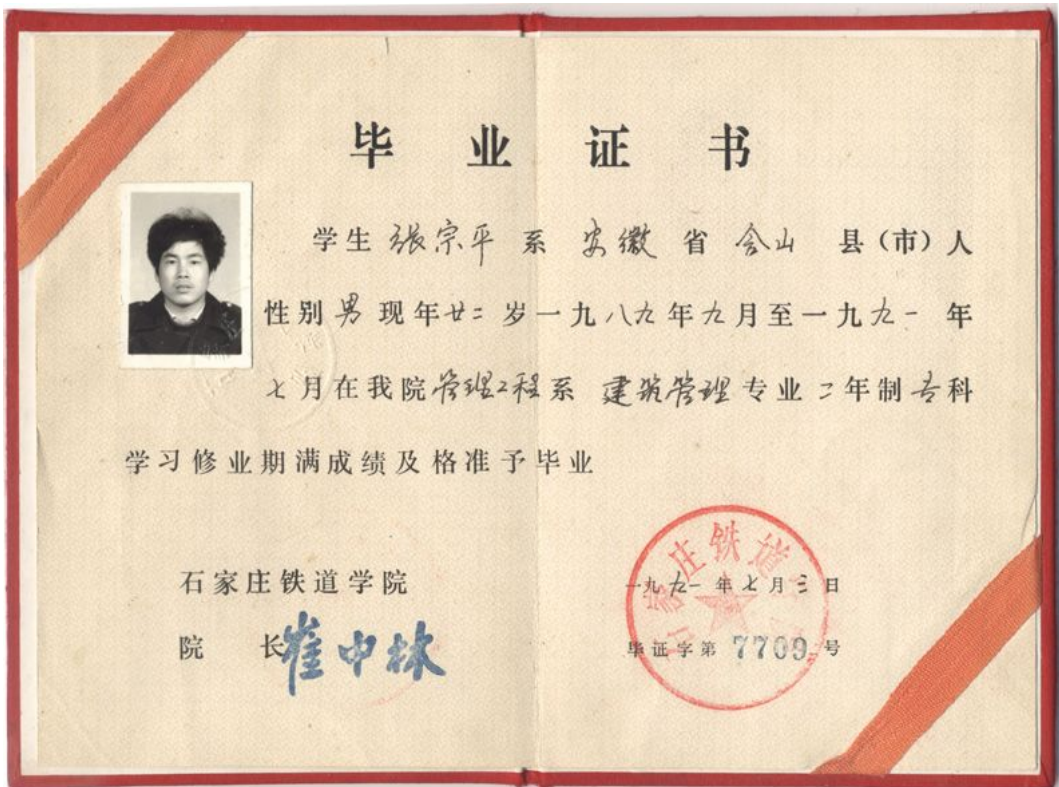 毕业证书
学生 张宗平 系 安徽 省 含山 县（市）人
性别 男 现年 廿二 岁一九八九年九月至一九九一 年
七月在我院管理工程系 建筑管理 专业 二年制专科
学习修业期满成绩及格准予毕业
石家庄铁道学院
院 长 崔中林
一九九一年七月三日
毕证字第 7709 号
石家庄铁道学院